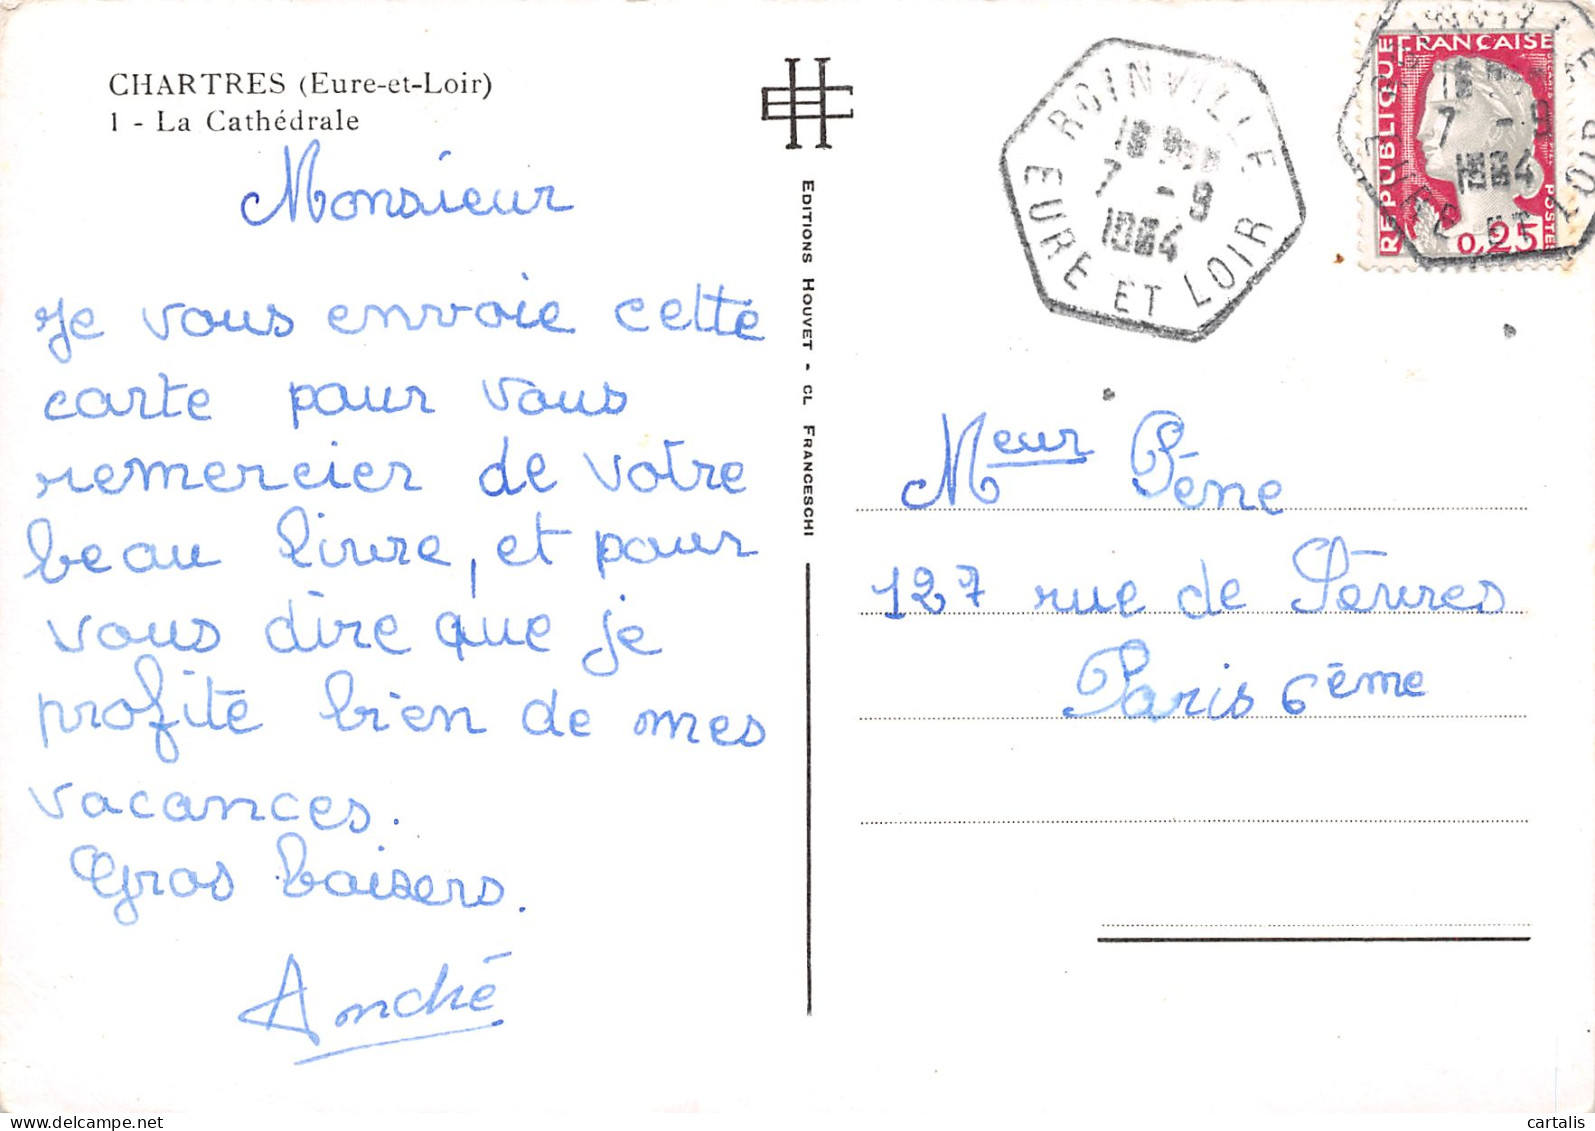 CHARTRES (Eure-et-Loir)
1 - La Cathédrale
Monsieur
Je vous envoie cette
carte pour vous
remercier de votre
beau livre, et pour
vous dire que je
profite bien de mes
vacances.
Gros baisers.
André
EDITIONS HOUVET - CL FRANCESCHI
ROINVILLE
7 - 9
1964
EURE ET LOIR
REPUBLIQUE FRANÇAISE
POSTES
0,25
7 - 9
1964
Meur Pène
127 rue de Sèvres
Paris 6ème
delcampe.net
cartalis